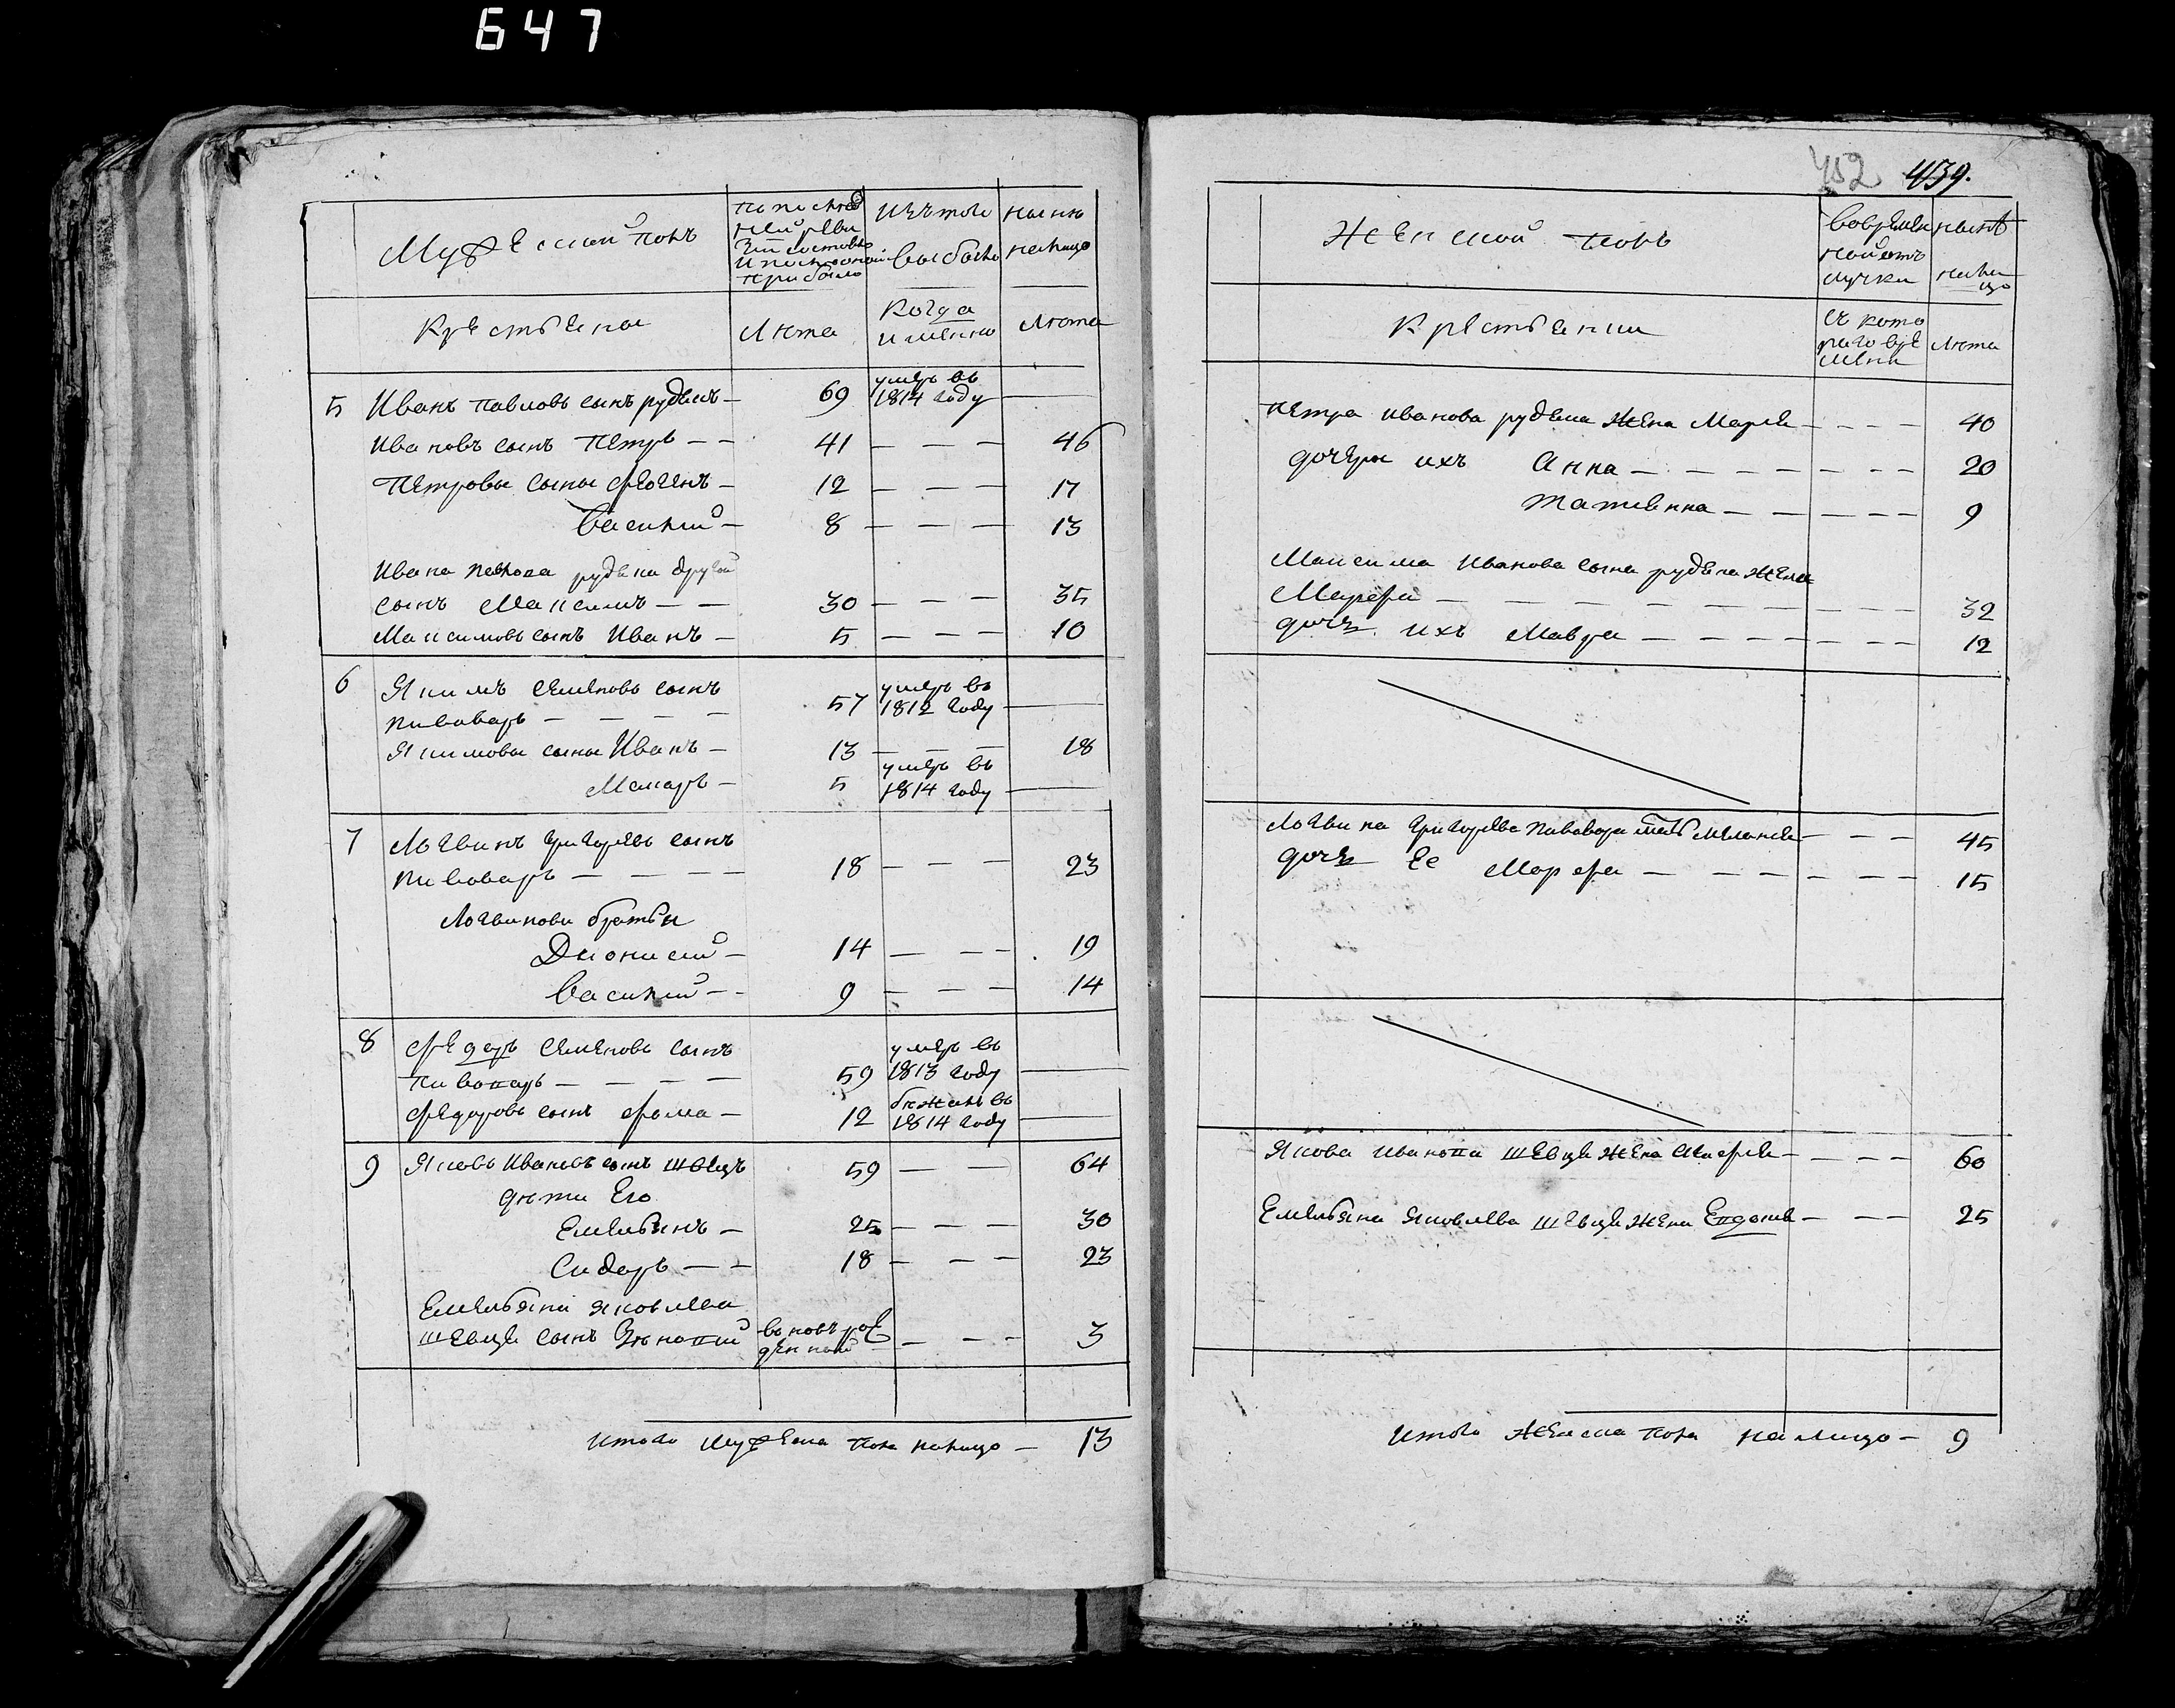 647
Мужескои полъ
по последней ревизiи состояло и после оной прибыло
изъ того выбыло
ныне налицо
Крестьяне
Лета
Когда именно
Лета
5 Иванъ Павловъ сынъ рудекъ — 69 умеръ въ 1814 году —
Ивановъ сынъ Петръ — — 41 — — — 46
Петровы сыны — 12 — — — 17
Василий — 8 — — — 13
Ивана Павлова рудека другой
сынъ Максимъ — — 30 — — — 35
Максимовъ сынъ Иванъ — 5 — — — 10
6 Якимъ Семеновъ сынъ
пивоваръ — — — — 57 умеръ въ 1812 году —
Якимовы сыны Иванъ — 13 — — — 18
Макаръ — 5 умеръ въ 1814 году —
7 Логвинъ Григорьевъ сынъ
пивоваръ — — — — 18 — — — 23
Логвинови братья
Дионисий — 14 — — — 19
Василий — — 9 — — — 14
8 Федоръ Семеновъ сынъ
пивоваръ — — — — 59 умеръ въ 1813 году —
Федоровъ сынъ Фома — 12 бежалъ въ 1814 году —
9 Яковъ Ивановъ сынъ швецъ 59 — — 64
дети Его
Емельянъ — 25 — — — 30
Сидоръ — — 18 — — — 23
Емельяна Яковлева
шевца сынъ вновь рожденной — — — 3
Итого мужеска пола налицо — 13
452 439.
Женской полъ
вовременной отлучки
ныне налицо
Крестьянки
съ котораго времени
Лета
Петра Иванова рудека жена Марья — — — — 40
дочери ихъ Анна — — — — — — — 20
Татиянна — — — — — 9
Максима Иванова сына рудека жена
Марфа — — — — — — — — — 32
дочь ихъ Мавра — — — — — — — 12
Логвина Григорьева пивовара мать Меланья — — — 45
дочь Ее Марфа — — — — — — 15
Якова Иванова шевца жена — — — — 60
Емельяна Яковлева шевца жена Евдокия — — — 25
Итого женска пола налицо — 9